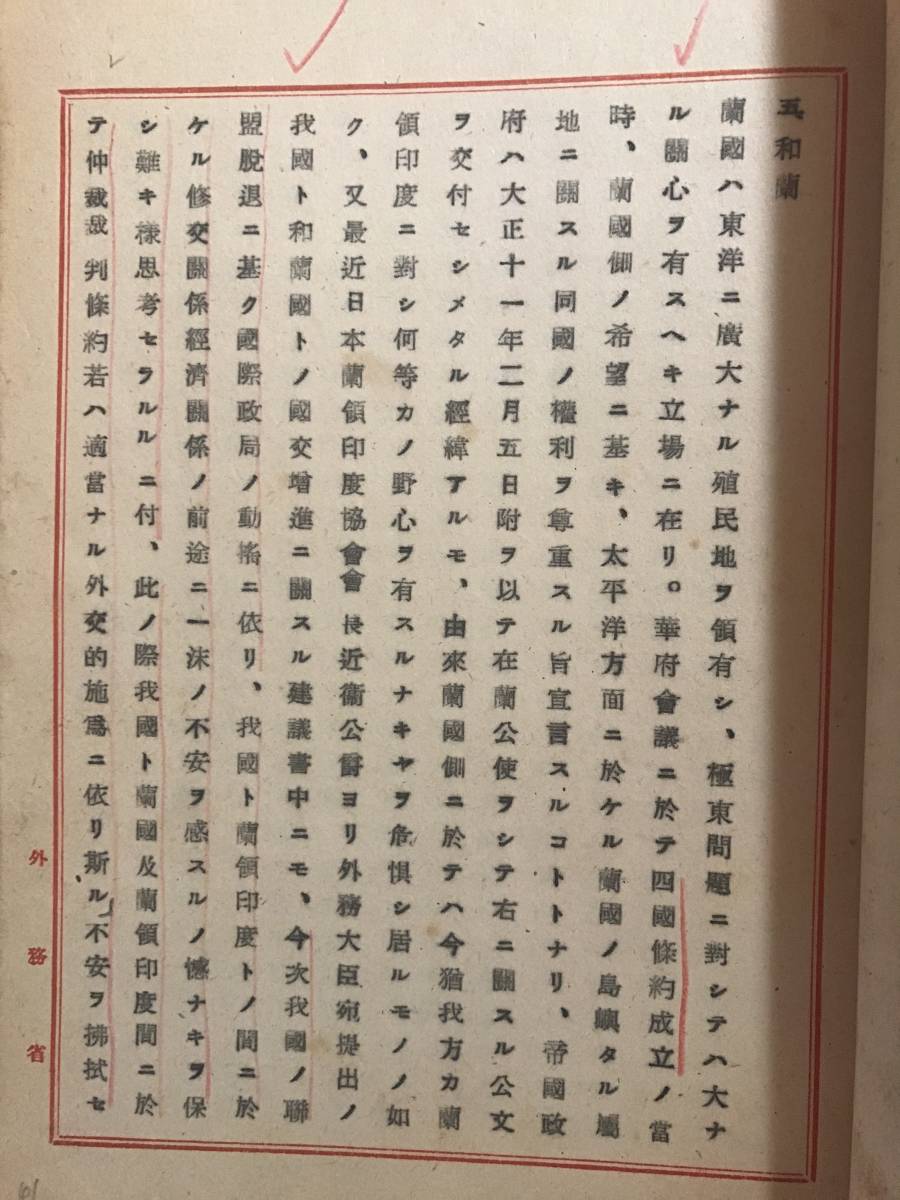 五、和蘭
蘭國ハ東洋ニ廣大ナル殖民地ヲ領有シ、極東問題ニ對シテハ大ナ
ル關心ヲ有スヘキ立場ニ在リ。華府會議ニ於テ四國條約成立ノ當
時、蘭國側ノ希望ニ基キ、太平洋方面ニ於ケル蘭國ノ島嶼タル屬
地ニ關スル同國ノ權利ヲ尊重スル旨宣言スルコトトナリ、帝國政
府ハ大正十一年二月五日附ヲ以テ在蘭公使ヲシテ右ニ關スル公文
ヲ交付セシメタル經緯アルモ、由來蘭國側ニ於テハ今猶我方カ蘭
領印度ニ對シ何等カノ野心ヲ有スルナキヤヲ危惧シ居ルモノノ如
ク、又最近日本蘭領印度協會會長近衞公爵ヨリ外務大臣宛提出ノ
我國ト和蘭國トノ國交增進ニ關スル建議書中ニモ、今次我國ノ聯
盟脫退ニ基ク國際政局ノ動搖ニ依リ、我國ト蘭領印度トノ間ニ於
ケル修交關係經濟關係ノ前途ニ一沫ノ不安ヲ感スルノ憾ナキヲ保
シ難キ樣思考セラルルニ付、此ノ際我國ト蘭國及蘭領印度間ニ於
テ仲裁裁判條約若ハ適當ナル外交的施爲ニ依リ斯ル不安ヲ拂拭セ
外務省
61